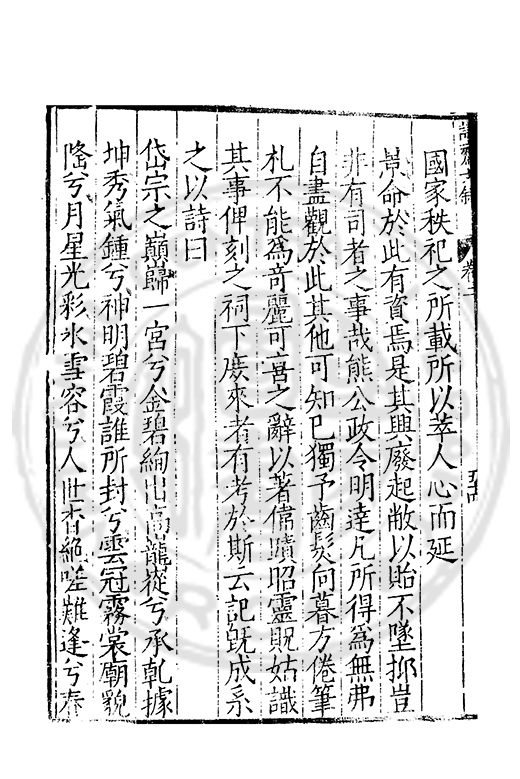 國家秩祀之所載所以萃人心而延
景命於此有資焉是其興廢起敝以貽不墜抑豈
非有司者之事哉熊公政令明達凡所得為無弗
自盡觀於此其他可知已獨予齒髮向暮方倦筆
札不能為竒麗可喜之辭以著偹蹟昭靈貺姑識
其事俾刻之祠下庻來者有考於斯云記旣成系
之以詩曰
岱宗之巔歸一宮兮金碧絢出高巃嵷兮承乾據
坤秀氣鍾兮神明碧霞誰所封兮雲冠霧裳廟貌
隆兮月星光彩氷雪容兮人世杳絕嗟難逢兮春